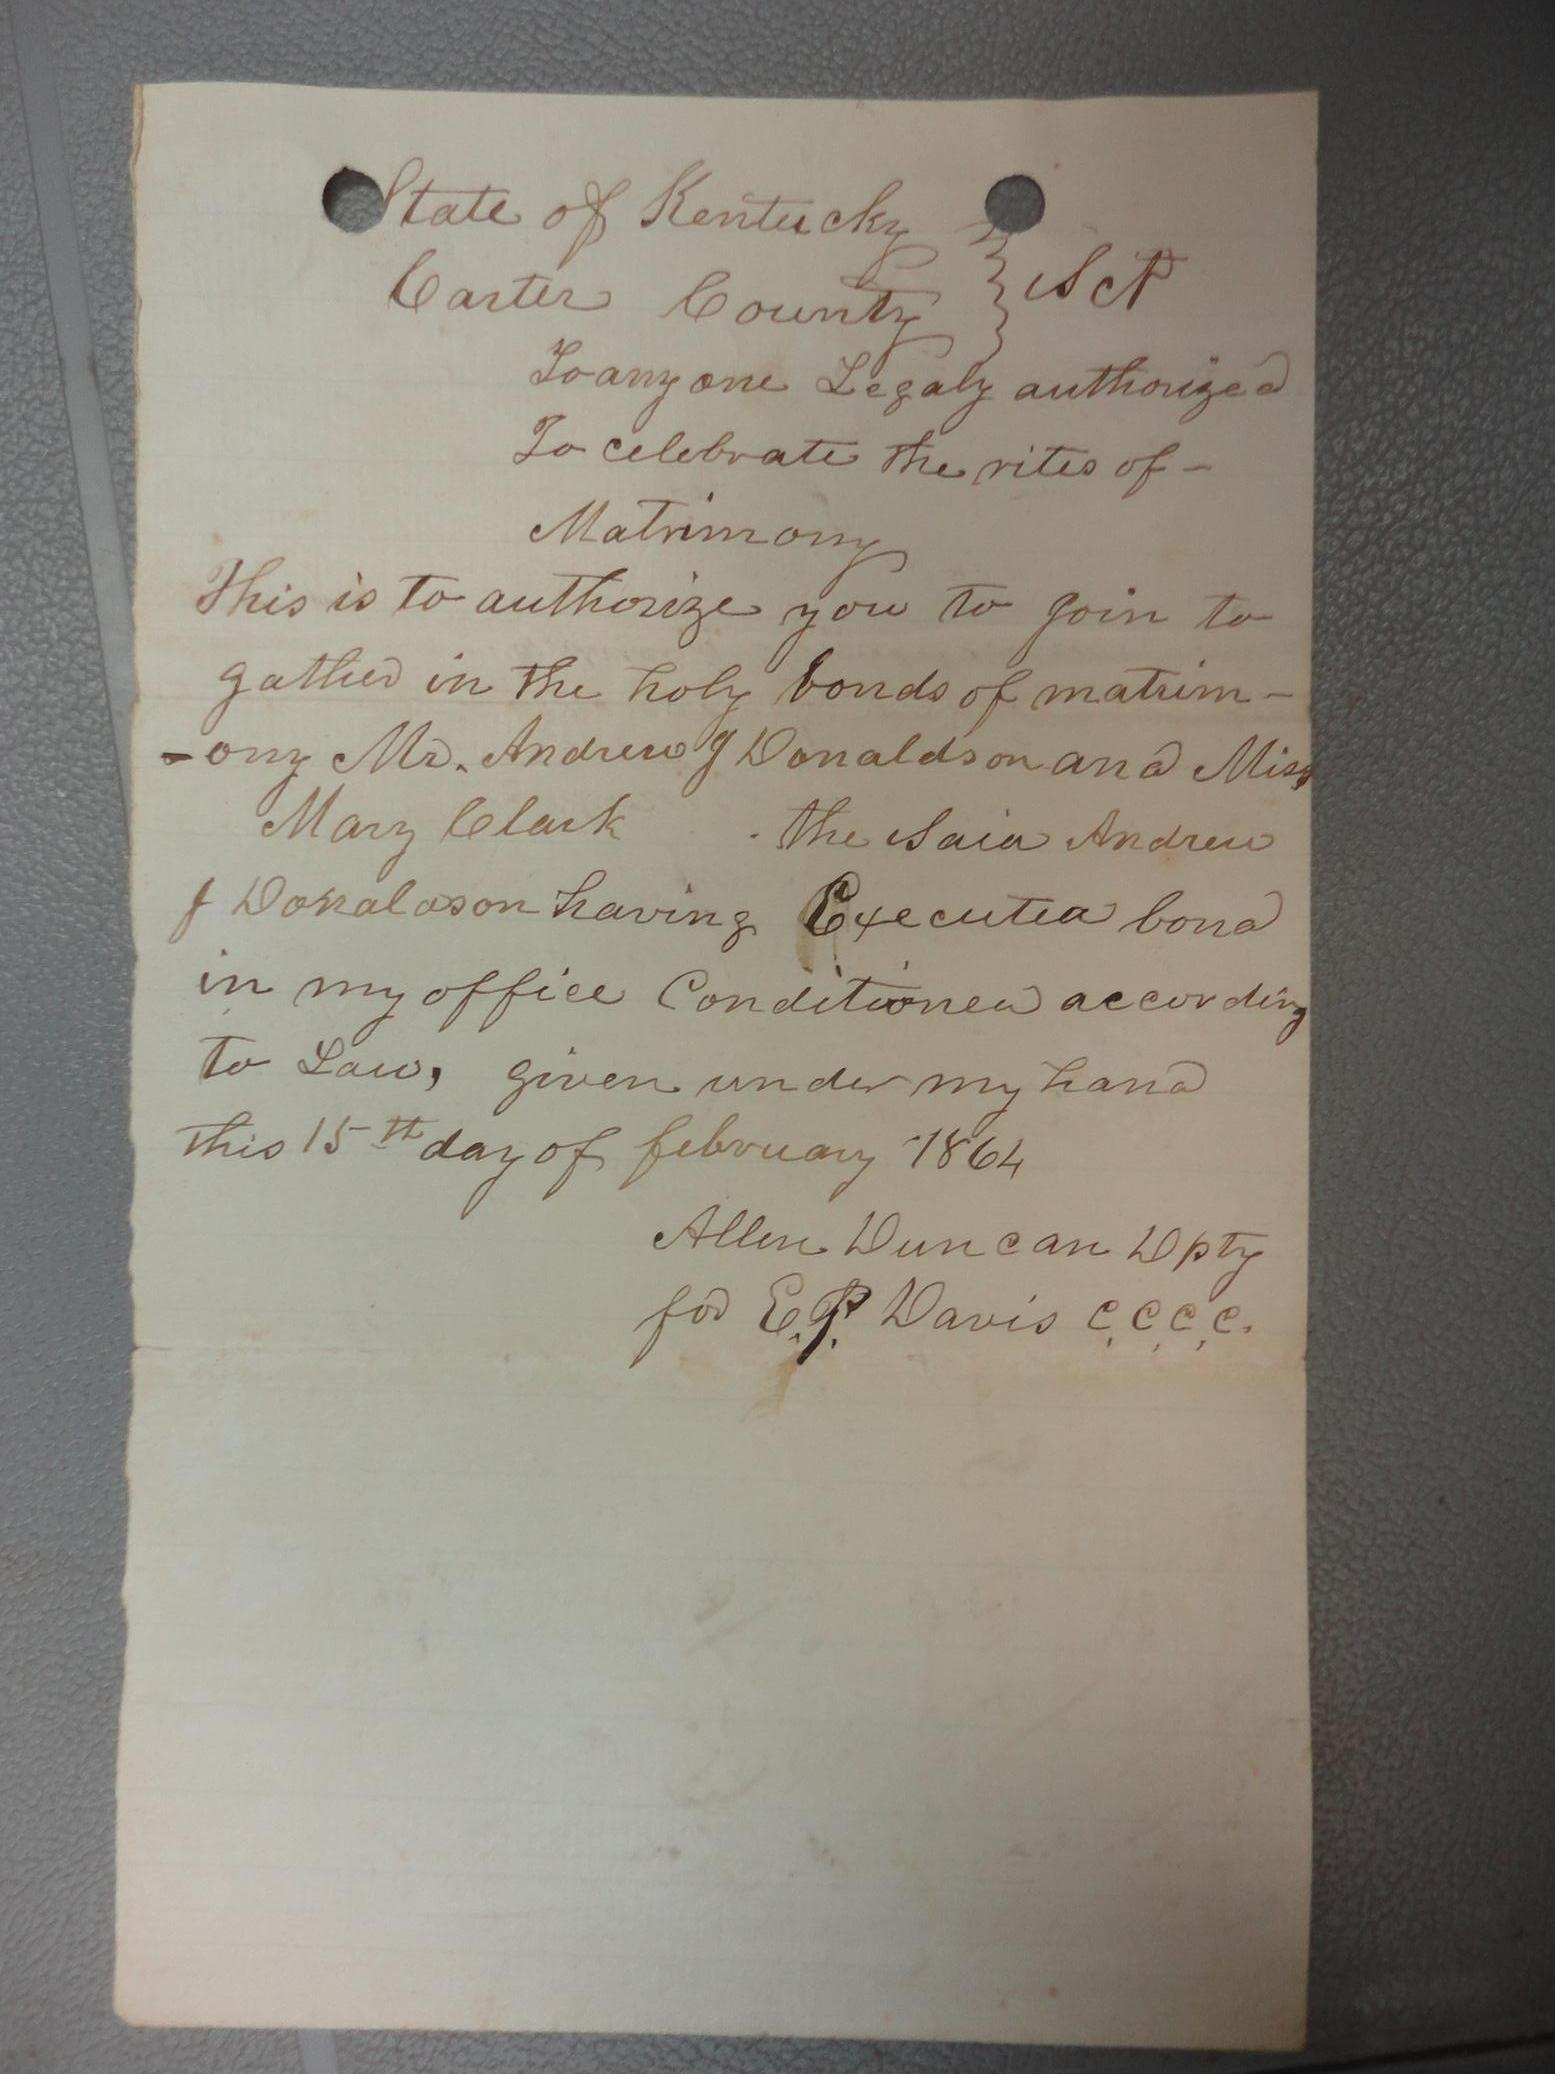 State of Kentucky
Carter County } Sct
To any one Legaly authorized
To celebrate the rites of -
Matrimony
This is to authorize you to join to
gather in the holy bonds of matrim-
-ony Mr. Andrew J Donaldson and Miss
Mary Clark . the said Andrew
J Donaldson having Executed bond
in my office Conditioned according
to Law, given under my hand
this 15th day of february 1864
Allen Duncan Dpty
for E.P. Davis C,C,C,C.